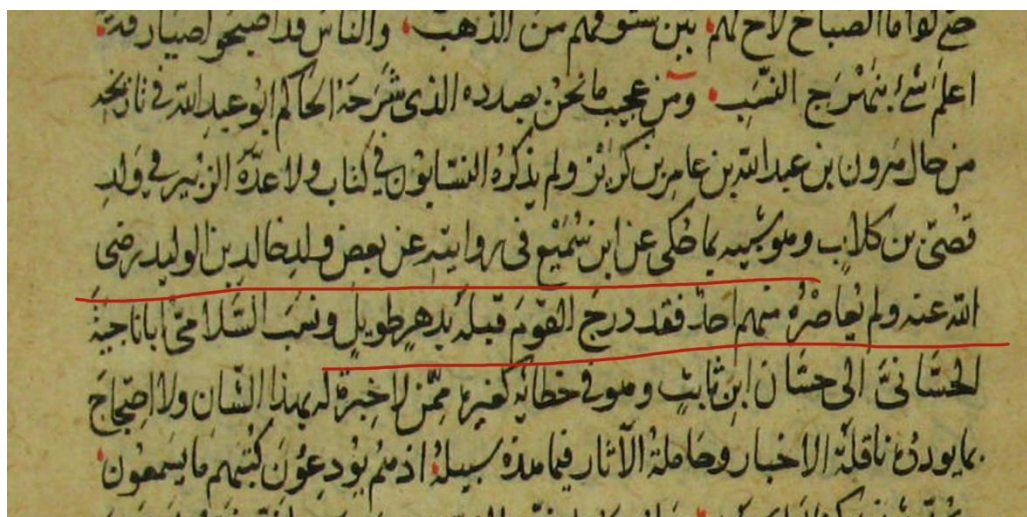 لهم بين سنوفهم من الذهب والناس قد اصبحوا صيارفة
اعلم شئ ببهرج النسب ومن عجيب ما نحن بصدده الذى شرحه الحاكم ابو عبد الله فى تاريخه
من حال هرون بن عبد الله بن عامر بن كريز ولم يذكره النسابون فى كتاب ولا عده الزبير فى ولد
قصى بن كلاب وهو شبيه بما حكى عن ابن سميع فى روايته عن بعض ولد خالد بن الوليد رضى
الله عنه ولم يعاصره منهم احد فقد درج القوم قبله بدهر طويل ونسب السلامى ابا ناجية
الحسانى الى حسان ابن ثابت وهو فى خطائه كغيره ممن لا خبرة له بهذا الشان ولا احتجاج
بما يورده ناقلة الاخبار وحاملة الآثار فيما هذه سبيله اذ هم يودعون كتبهم ما يسمعون